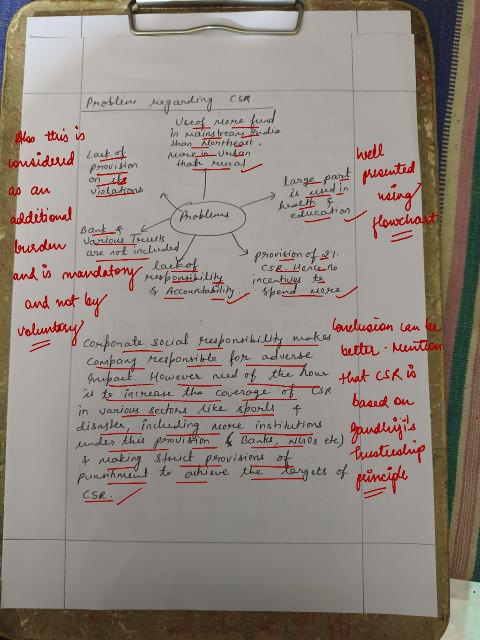 Problem regarding CSR
Use of more fund
in mainstream India
than Northeast,
more in Urban
than rural
Lack of
provision
on its
violations
large part
is used in
health &
education
Problems
Bank &
Various Trusts
are not included
lack of
responsibility
& Accountability
provision of 2%
CSR. Hence no
incentives to
spend more
Also this is
considered
as an
additional
burden
and is mandatory
and not by
voluntary
Well
presented
using
flowchart
Corporate social responsibility makes
Company responsible for adverse
impact. However need of the hour
is to increase the coverage of CSR
in various sectors like sports &
disaster, including more institutions
under this provision (Banks, NGOs etc)
& making strict provisions of
punishment to achieve the targets of
CSR.
Conclusion can be
better. Mention
that CSR is
based on
Gandhiji's
trusteeship
principle